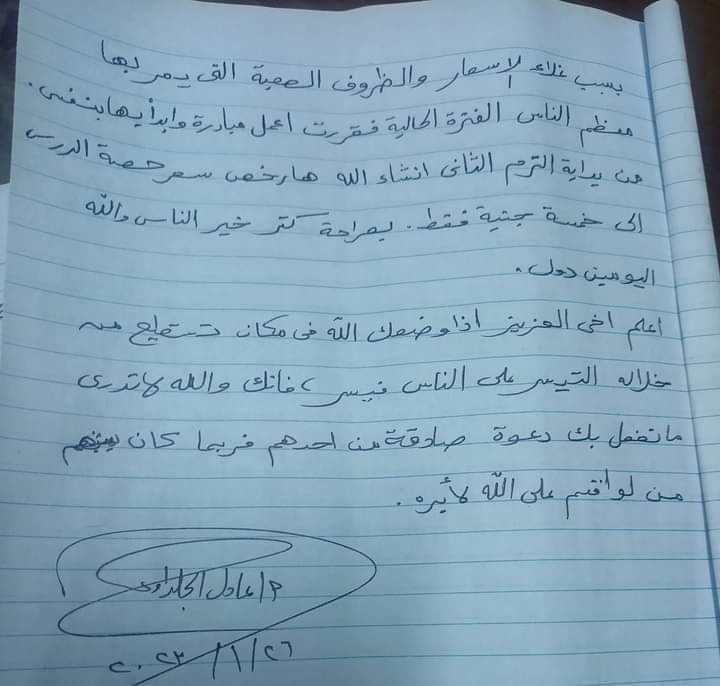 بسبب غلاء الاسعار والظروف الصعبة التى يمر بها
معظم الناس الفترة الحالية فقررت اعمل مبادرة وابدأ بيها بنفسى.
من بداية الترم الثانى انشاء الله هارخص سعر حصة الدرس
الى خمسة جنية فقط. بصراحة كتر خير الناس والله
اليومين دول.
اعلم اخى العزيز اذا وضعك الله فى مكان تستطيع من
خلاله التيسر على الناس فيسر، فانك والله لا تدرى
ما تفعل بك دعوة صادقة من احدهم فربما كان بينهم
من لو اقسم على الله لأبره.
م/عادل
٢٠٢٣/١/٢٦